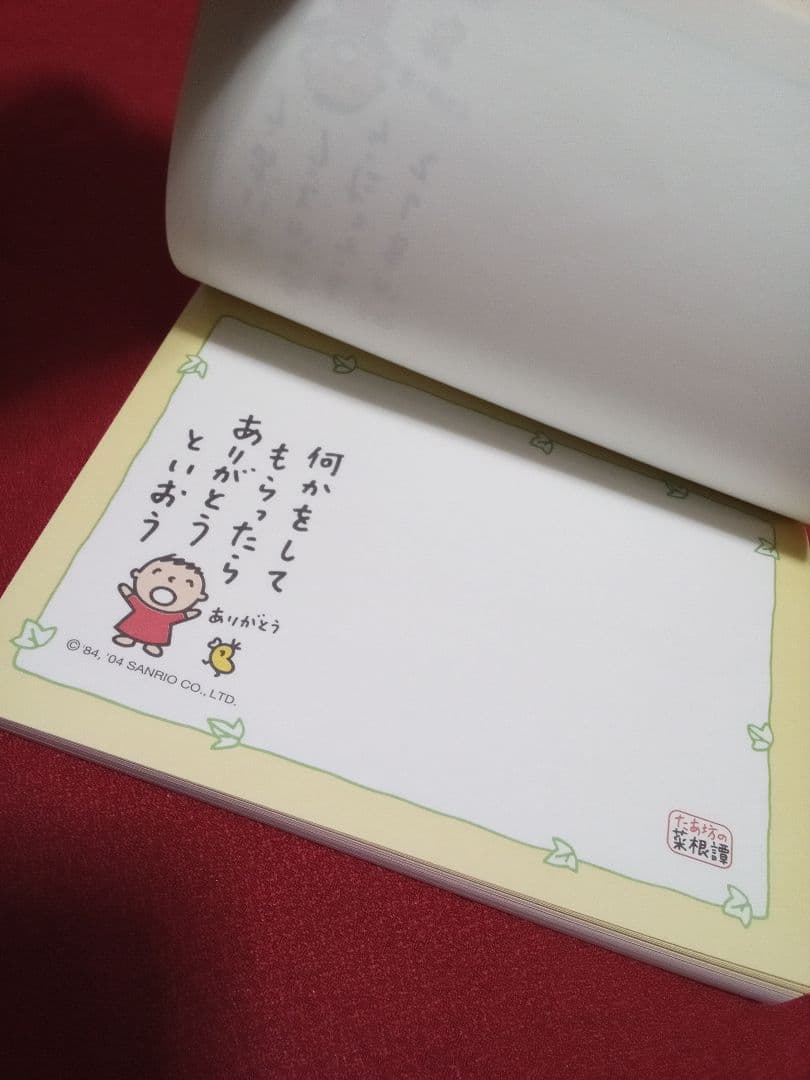 何かをして
もらったら
ありがとう
といおう
ありがとう
© '84, '04 SANRIO CO., LTD.
たあ坊の
菜根譚